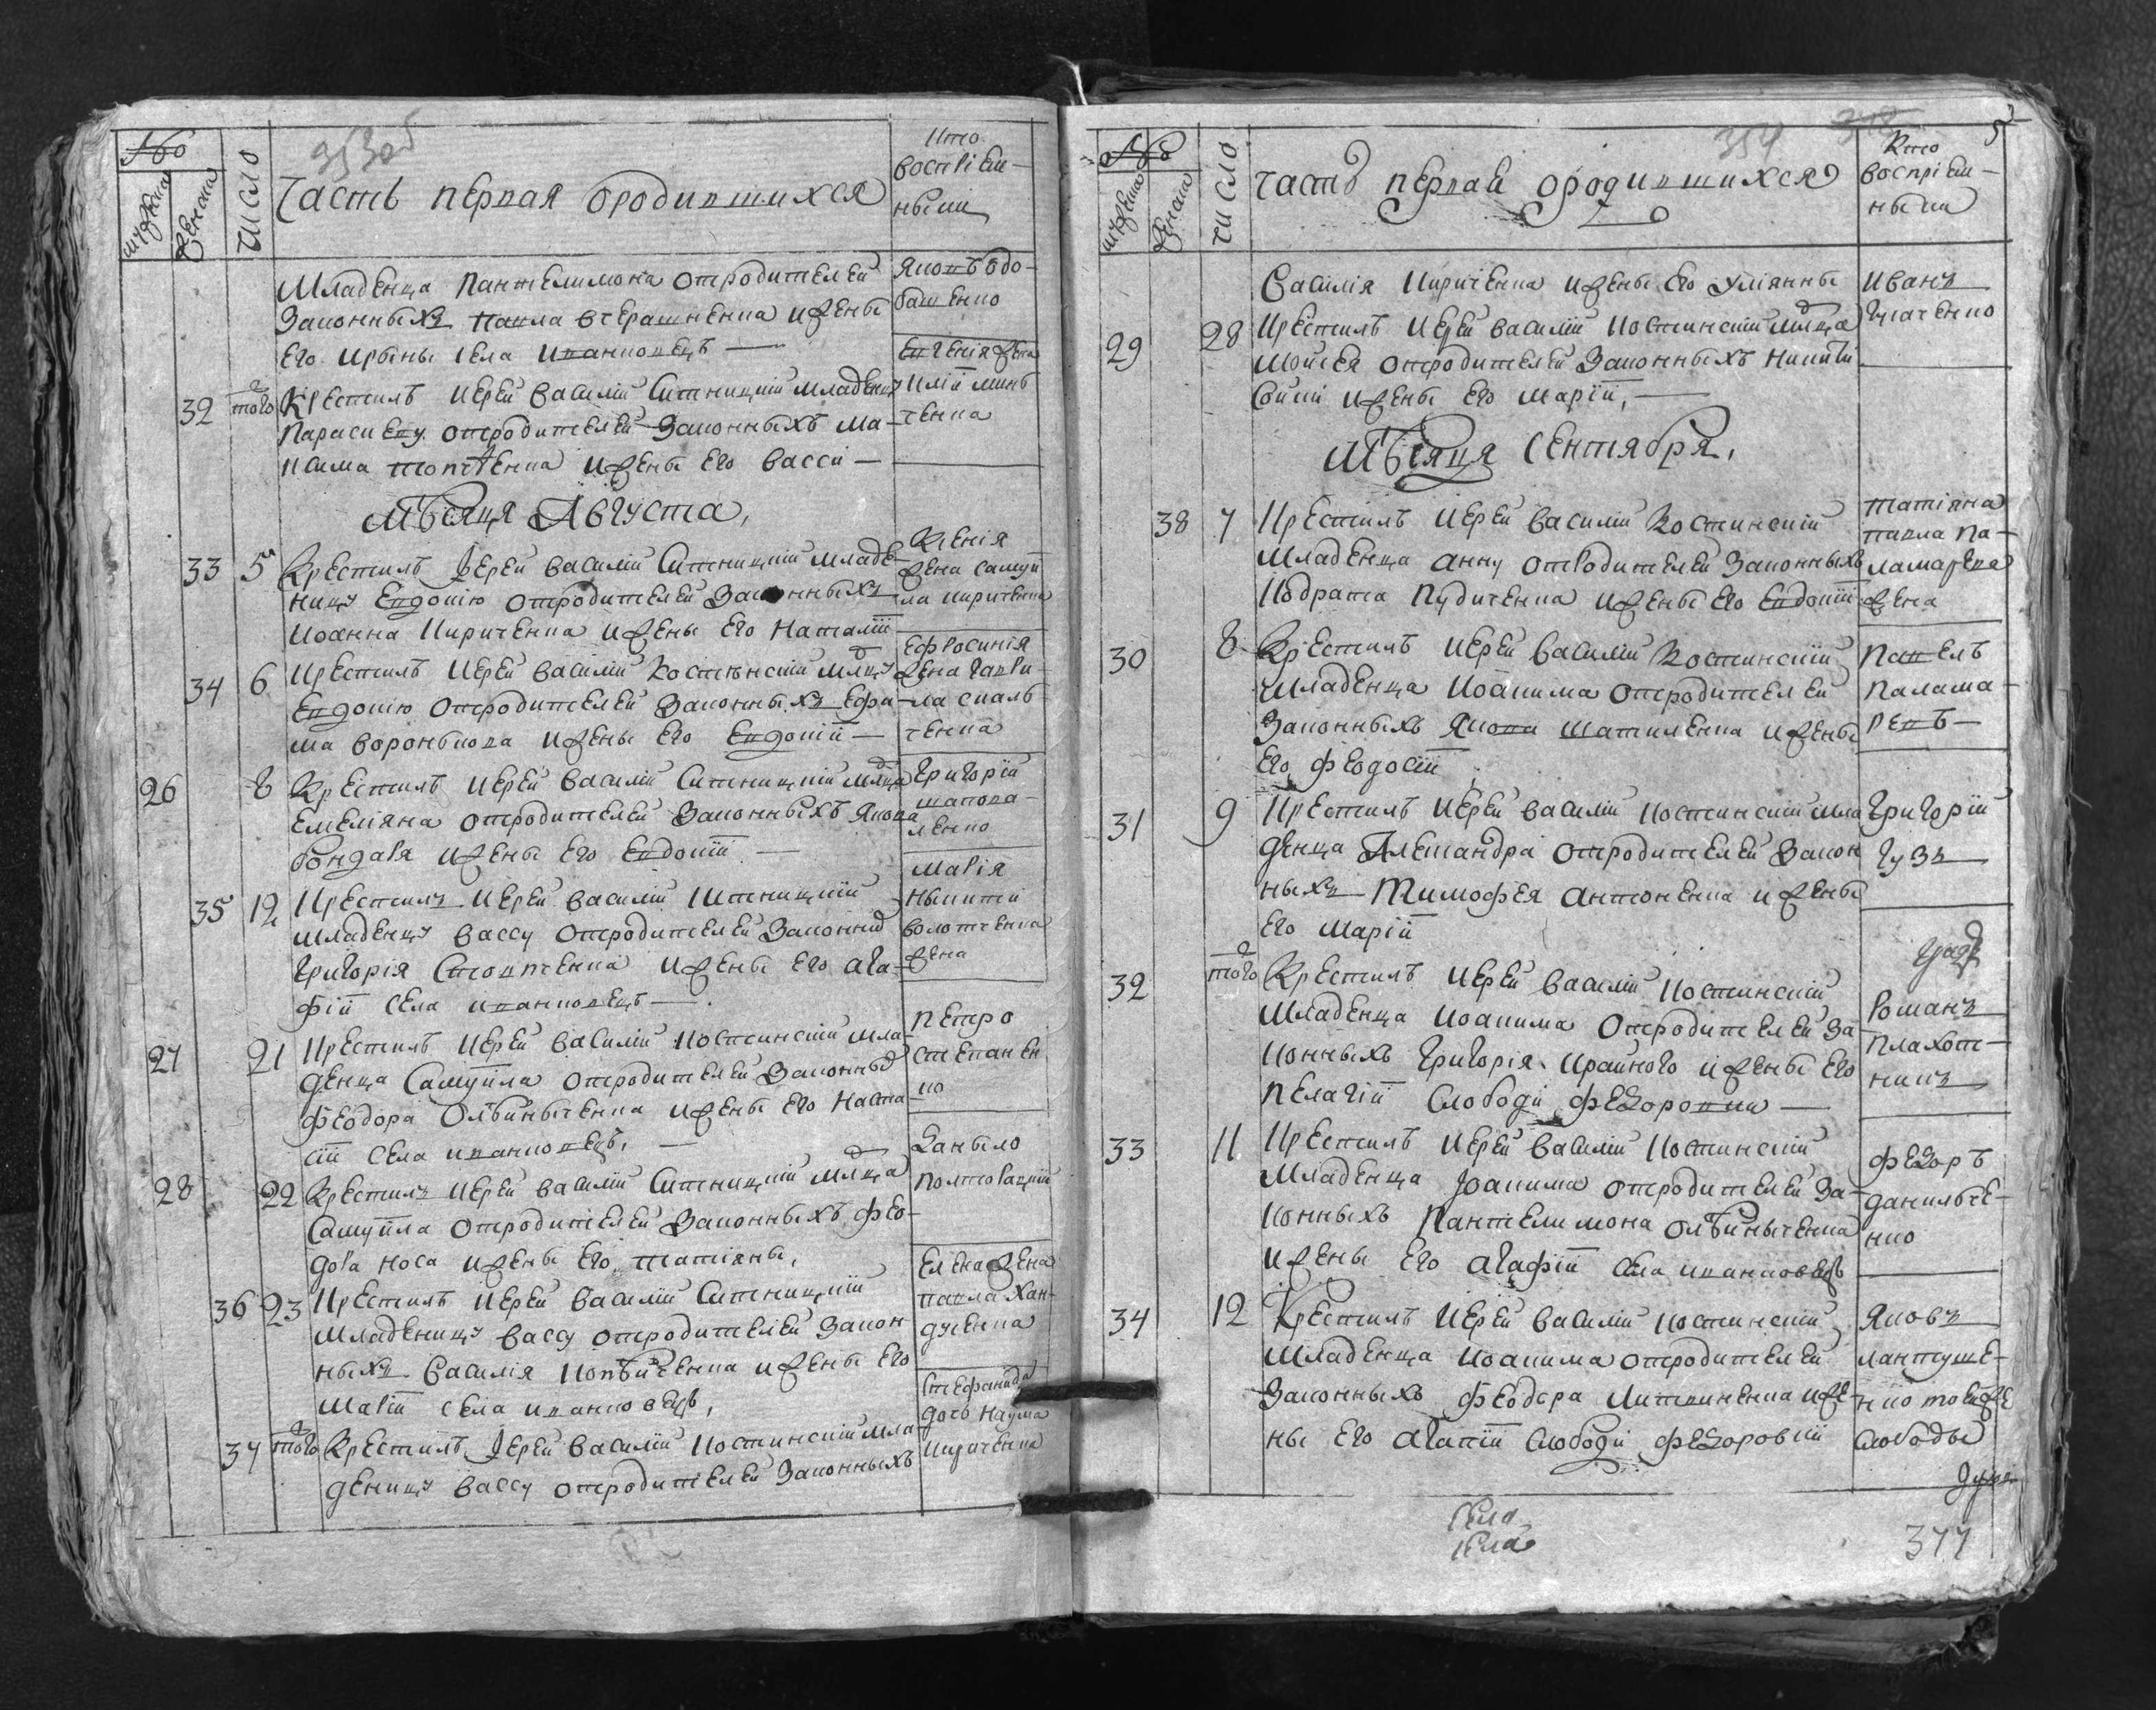 №
мужеска
женска
число
353об
Часть перваяородившихся
Кто
воспріем-
ными
Младенца Пантелимона отродителей
законныхъ Павла вчерашненка ижены
его Ирины села иванковецъ —
Яковъ бдо-
башенко
32 того
Крестилъ иерей василій Ситницкій младеницу
Параскеву отродителей законныхъ Ма-
ксима топчѣенка ижены его Васси —
Евгенія жена
илій минь
ченка
Мѣсяця Августа,
33 5
Крестилъ іерей василій Ситницкій младе-
ницу Евдокію отродителей законныхъ
иоанна Кириченка ижены его Наталіи
Ксенія
жена самуй
ла кириченка
34 6
Крестилъ иерей василій Костинскій млцу
Евдокію отродителей законныхъ Ефи-
ма воронькова ижены его Евдокіи —
Ефросинія
жена гаври-
ла сколь
ченка
26 8
Крестилъ иерей василій Ситницкій млца
Емеліяна отродителей законныхъ Якова
бондаря ижены его Евдокіи —
Григорій
шапова-
ленко
35 12
Крестилъ иерей василій Ситницкій
младенцу вассу отродителей законнѣ
григорія Стовпченка ижены его ага-
фіи села иванковецъ —
Марія
никити
волотченка
жена
27 21
Крестилъ иерей василій костинскій мла-
денца Самуила отродителей законны
феодора Олѣйниченка ижены его Наста
сіи села иванковецъ, —
Петро
степанен
ко
28 22
Крестилъ иерей василій Ситницкій млца
Самуила отродителей законныхъ фео-
дора носа ижены его татіяны,
Данило
полторацкій
36 23
Крестилъ иерей василій Ситницкій
младеницу вассу отродителей закон
ныхъ василія копѣйченка ижены его
маріи села иванковецъ,
Елена жена
павла хан-
дусенка
37 того
Крестилъ іерей василій костинскій мла
деницу вассу отродителей законныхъ
Стефанида
дочь наума
кириченка
№
мужеска
женска
число
354
часть первая ородившихся
Кто
воспріем-
ными
Василія Кириченка ижены его уліянны
Иванъ
Гначенко
29 28
Крестилъ иерей василій костинскій млца
Мойсея отродителей законныхъ никити
ижены его маріи, —
Мѣсяця Сентября,
38 7
Крестилъ иерей василій Костинскій
младенца анну отродителей законныхъ
Кодрата Пудиченка ижены его Евдокіи
татіяна
павла па-
ламарева
жена
30 8
Крестилъ иерей василій Костинскій
младенца Иоакима отродителей
законныхъ Якова шатиленка ижены
его феодосіи
Павелъ
палама-
ревъ —
31 9
Крестилъ иерей василій костинскій мла
денца Александра отродителей закон
ныхъ Тимофея антоненка ижены
его маріи
Григорій
гузъ
32 того
Крестилъ иерей василій костинскій
младенца иоакима отродителей за-
конныхъ григорія крайного ижены его
Пелагіи слободи Федоровки —
Романъ
плахот-
никъ
33 11
Крестилъ иерей василій костинскій
младенца Іоакима отродителей за-
конныхъ Пантелимона олѣйниченка
ижены его агафіи села иванковецъ
федоръ
данильче-
нко
34 12
Крестилъ иерей василій костинскій
младенца Иоакима отродителей
законныхъ феодора Литвиненка иже-
ны его агапіи слободи федоровки
Яковъ
лантуше-
нко тоейже
слободы
села
села
377